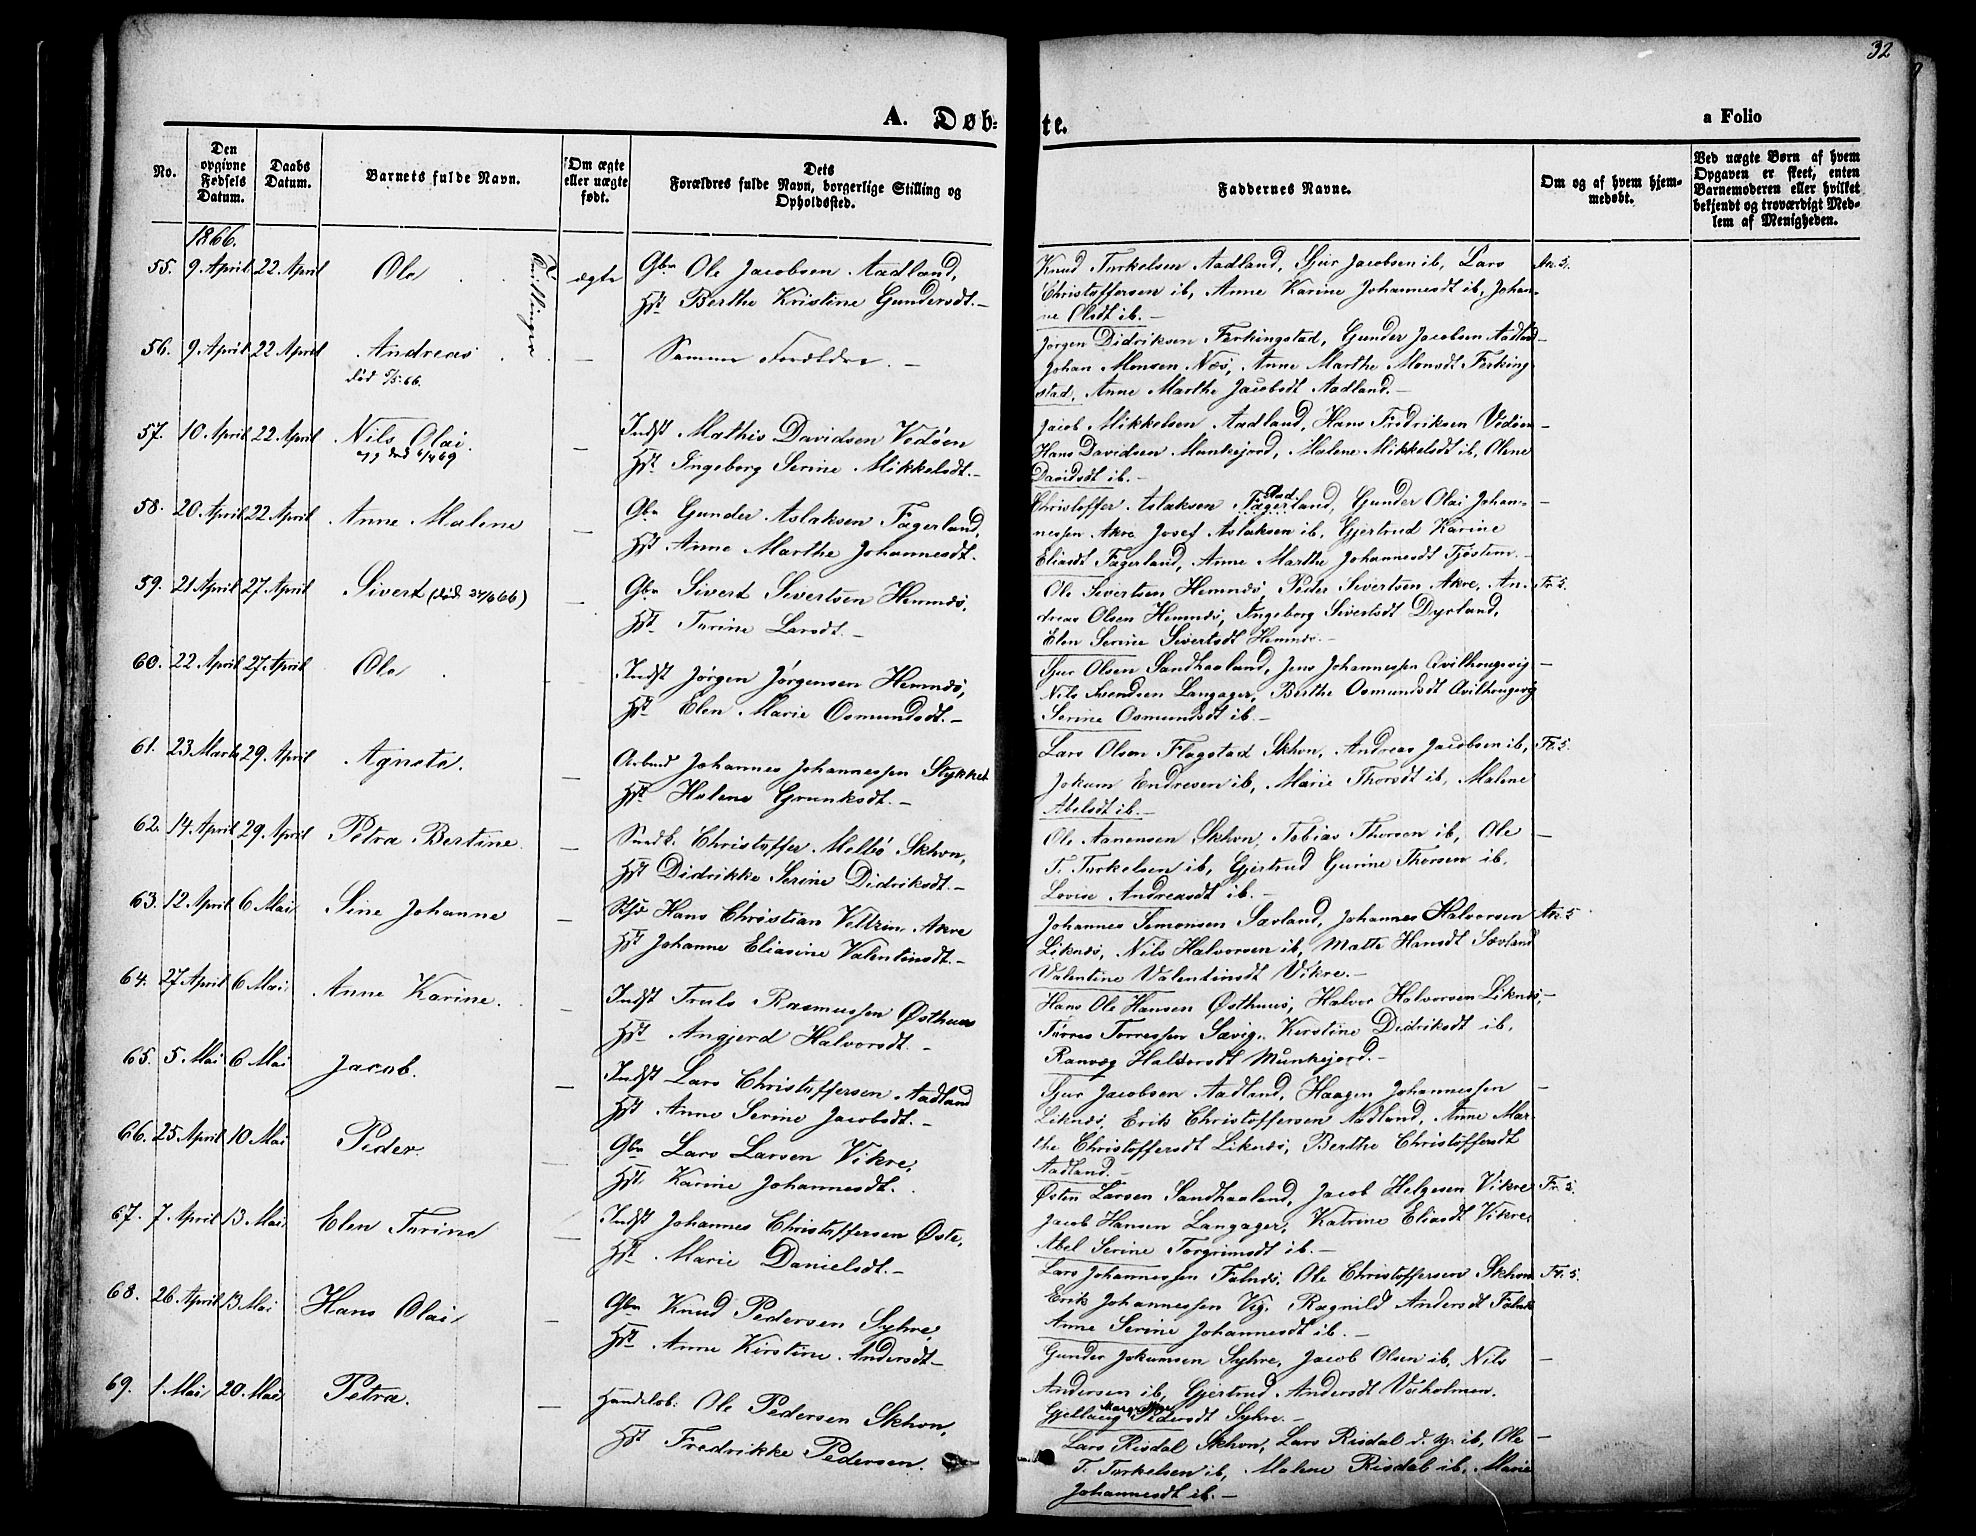 32
A. Døb=
te.
a Folio
No.
Den opgivne Fødsels Datum.
Daabs Datum.
Barnets fulde Navn.
Om ægte eller uægte født.
Dets Forældres fulde Navn, borgerlige Stilling og Opholdssted.
Faddernes Navne.
Om og af hvem hjemmedøbt.
Ved uægte Børn af hvem Opgaven er skeet, enten Barnemoderen eller hvilket bekjendt og troværdigt Medlem af Menigheden.
1866.
55. 9 April 22 April Ole Tvillinger ægte Gbr Ole Jacobsen Aadland,
Hst Berthe Kristine Gundersdt.-
Knud Turkelsen Aadland, Sjur Jacobsen ib, Lars
Christoffersen ib, Anne Karine Johannesdt ib, Johan-
ne Olsdt ib.-
56. 9 April 22 April Andreas — Samme Forældre.-
død 5/5.66.
Jørgen Didriksen Ferkingstad, Gunder Jacobsen Aadland
Johan Monsen Næs, Anne Marthe Monsdt Ferking
stad, Anne Marthe Jacobsdt Aadland.-
57. 10 April 22 April Nils Olai — Indst Mathis Davidsen Vedøen
Hst Ingeborg Serine Mikkelsdt.-
Jacob Mikkelsen Aadland, Hans Fredriksen Vedøen —
Hans Davidsen Munkejord, Malene Mikkelsdt ib, Olene
Davidsdt ib.-
58. 20 April 22 April Anne Malene — Gbr Gunder Aslaksen Fagerland,
Hst Anne Marthe Johannesdt.
Christoffer Aslaksen Fagerland, Gunder Olai Johan- —
nessen Akre Josef Aslaksen ib, Gjertrud Karine
Eliasdt Fagerland, Anne Marthe Johannesdt Tjøstem.-
59. 21 April 27 April Sivert — Gbr Sivert Sivertsen Hemnes,
Hst Turine Larsdt.-
Ole Sivertsen Hemnes, Peder Sivertsen Akre, An-
dreas Olsen Hemnes, Ingeborg Sivertsdt Dyrland,
Elen Serine Sivertsdt Hemnes.-
60. 22 April 27 April Ole — Indst Jørgen Jørgensen Hemnes,
Hst Elen Marie Osmundsdt.-
Sjur Olsen Sandhaaland, Jens Johannessen Qvilhaugsvig —
Nils Svendsen Langager, Berthe Osmundsdt Qvilhaugsvig
Serine Osmundsdt ib.-
61. 23 Marts 29 April Agnete. — Arbmd Johannes Johannessen Stykket
Hst Helene Grunksdt.-
Lars Olsen Flagstad Skhvn, Andreas Jacobsen ib,
Jokum Endresen ib, Marie Thorsdt ib, Malene
Abelsdt ib.-
62. 14 April 29 April Petra Bertine. — Snedk. Christoffer Melbø Skhvn,
Hst Didrikke Serine Didriksdt.-
Ole Aanensen Skhvn, Tobias Thorsen ib, Ole —
T. Turkelsen ib, Gjertrud Gurine Thorsen ib,
Lovise Andreasdt ib.-
63. 12 April 6 Mai Sine Johanne — Hans Christian Veltzin Akre
Hst Johanne Eliasine Valentinsdt.-
Johannes Simonsen Sævland, Johannes Halvorsen
Liknes, Nils Halvorsen ib, Matte Hansdt Sævland
Valentine Valentinsdt Vikre.-
64. 27 April 6 Mai Anne Karine. — Indst Truls Rasmussen Østhuus
Hst Angjerd Halvorsdt.-
Hans Ole Hansen Østhuus, Halvor Halvorsen Liknes, —
Tørres Torressen Sævig, Kirstine Didriksdt ib,
Ranveg Haldorsdt Munkejord.-
65. 5 Mai 6 Mai Jacob. — Indst Lars Christoffersen Aadland
Hst Anne Serine Jacobsdt.-
Sjur Jacobsen Aadland, Haagen Johannessen —
Liknes, Erik Christoffersen Aadland, Anne Mar-
the Christoffersdt Liknes, Berthe Christoffersdt
Aadland.-
66. 25 April 10 Mai Peder — Gbr Lars Larsen Vikre,
Hst Karine Johannesdt.
Østen Larsen Sandhaaland, Jacob Helgesen Vikre
Jacob Hansen Langager, Katrine Eliasdt Vikre,
Abel Serine Torgrimsdt ib.-
67. 7 April 13 Mai Elen Turine Indst Johannes Christoffersen Østr.
Hst Marie Danielsdt.-
Lars Johannessen Falnes, Ole Christoffersen Skhvn
Erik Johannessen Vig, Ragnild Andersdt Falnes
Anne Serine Johannesdt ib.-
68. 26 April 13 Mai Hans Olai — Gbr Knud Pedersen Syhre,
Hst Anne Kirstine Andersdt—
Gunder Jokumsen Syhre, Jacob Olsen ib, Nils —
Andersen ib, Gjertrud Andersdt Vaholmen.
Gjellaug Margrethe Pedersdt Syhre.-
69. 1. Mai 20. Mai Petra. — Handelsb: Ole Pedersen Skhvn,
Hst Fredrikke Pedersen.
Lars Risdal Skhvn, Lars Risdal d. y. ib, Ole —
T. Turkelsen ib, Malene Risdal ib, Marie
Johannesdt ib.-